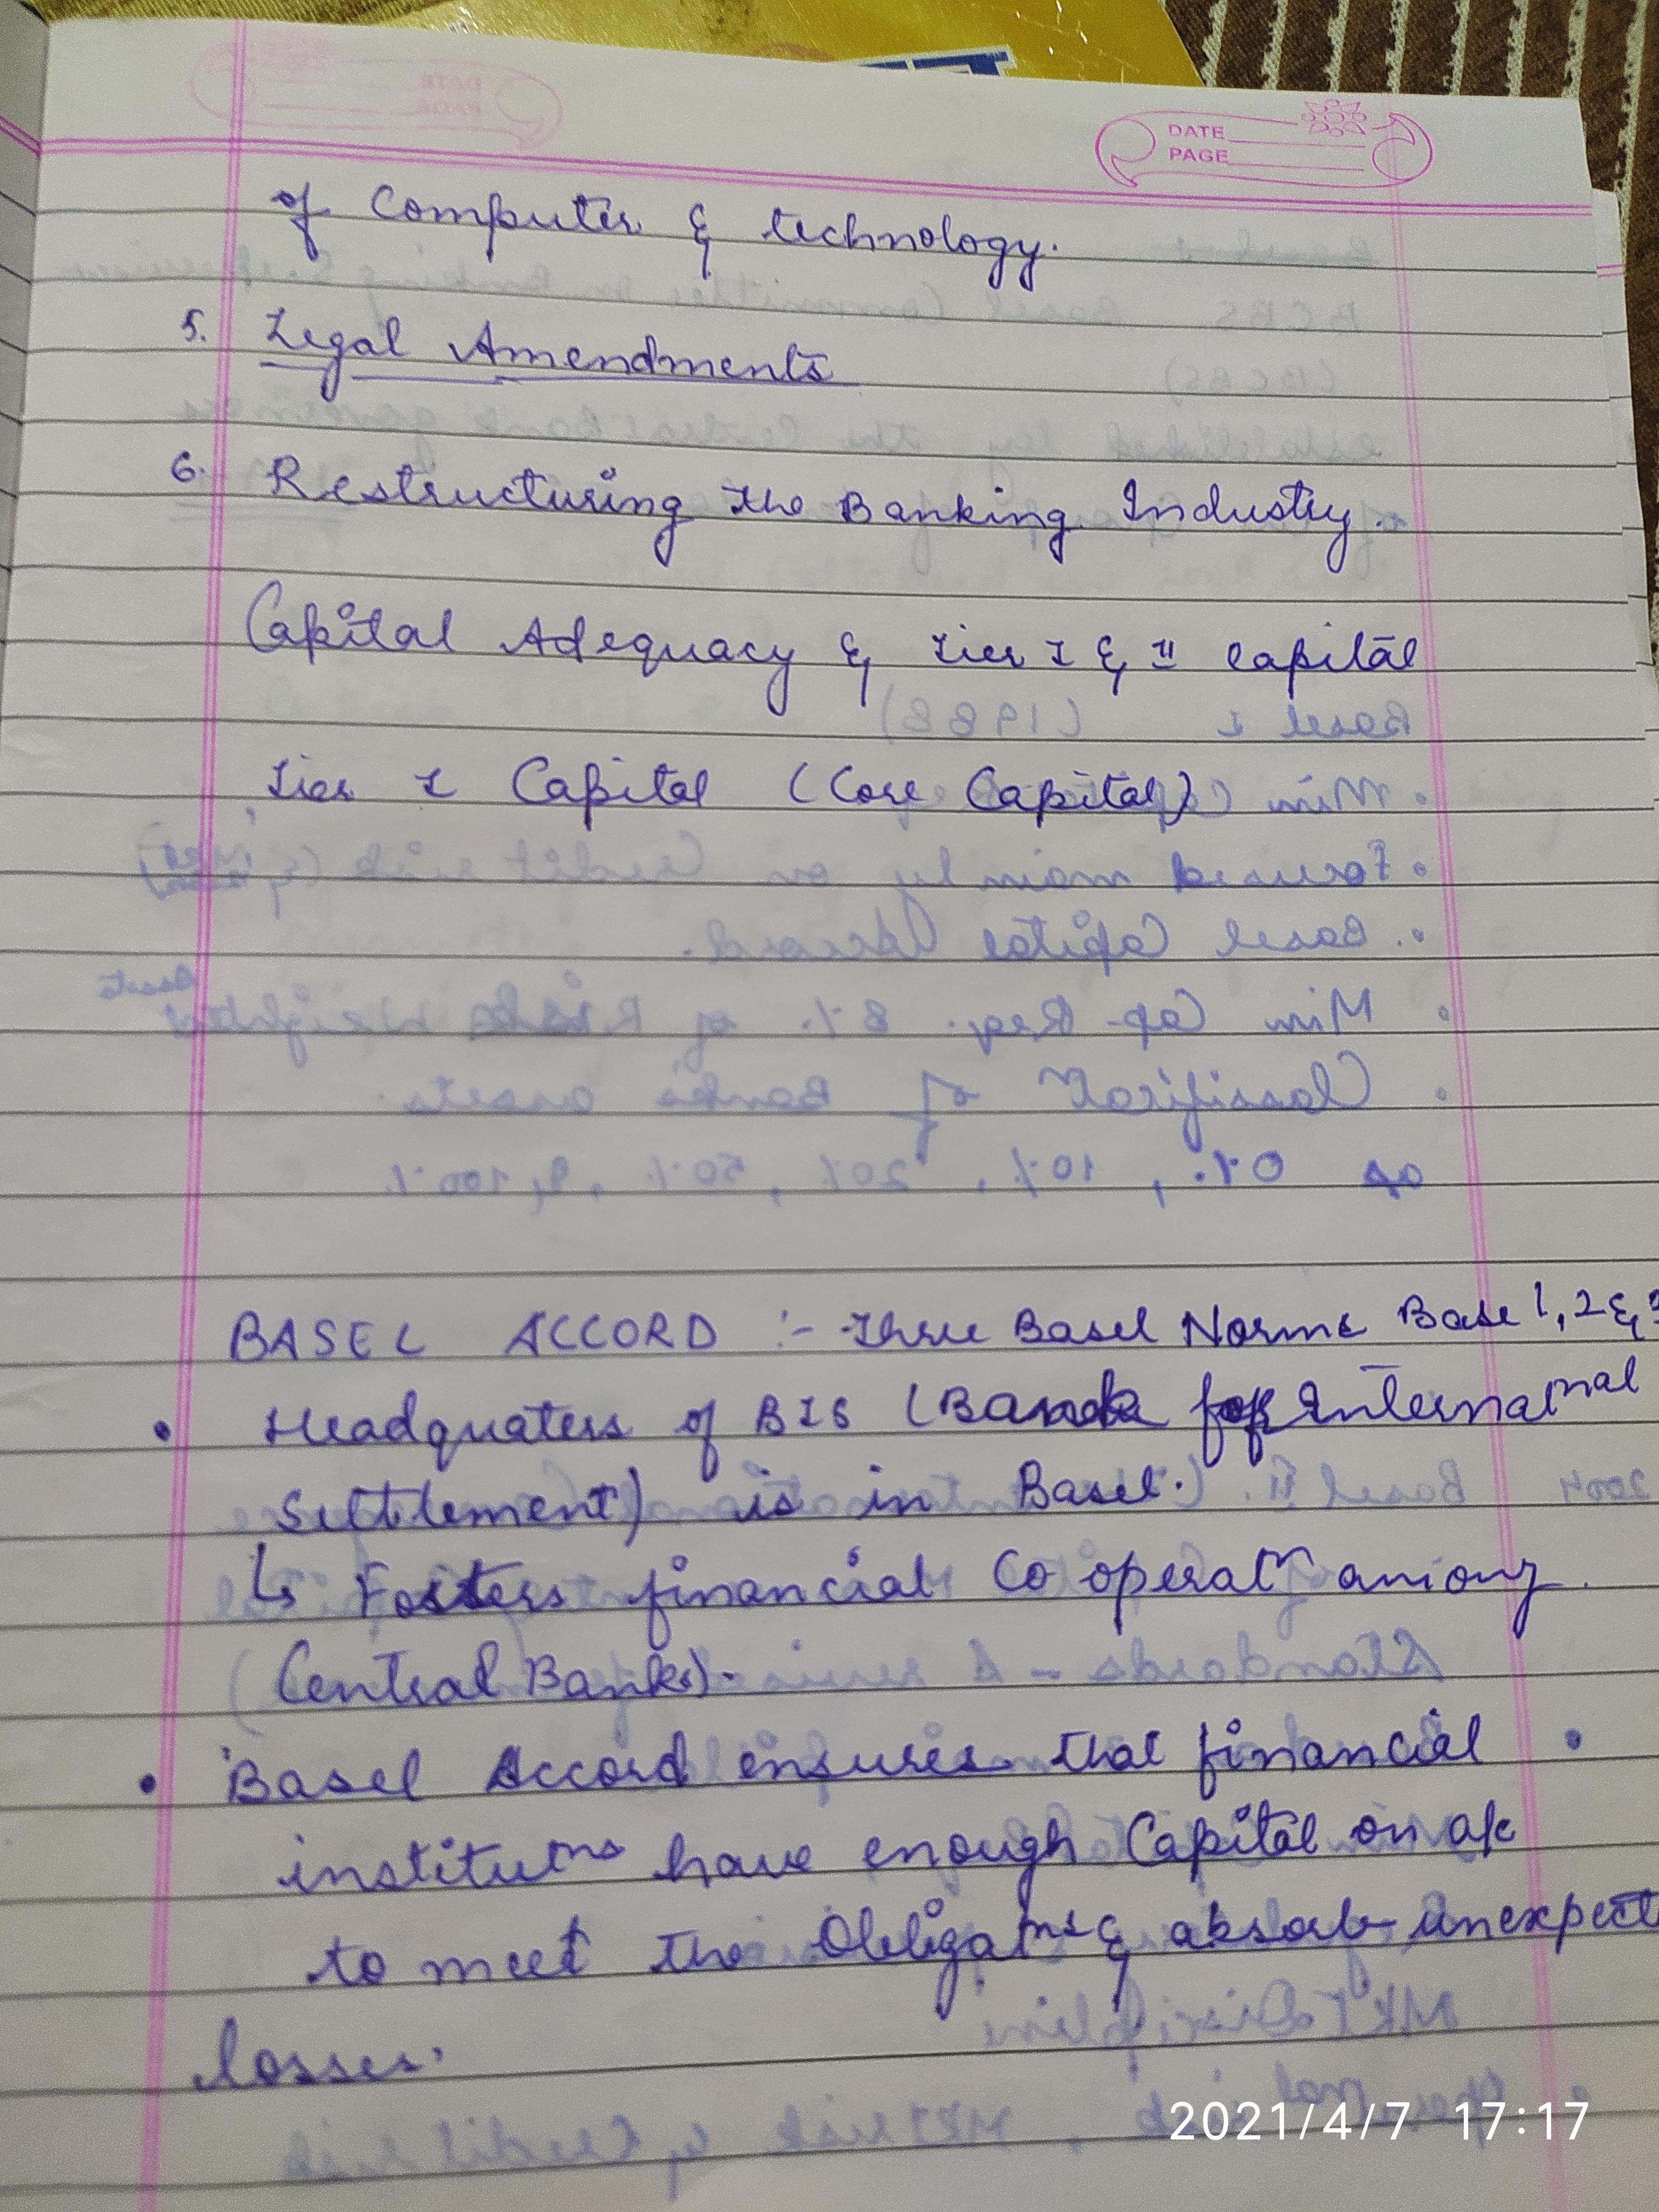 DATE
PAGE
of Computer & technology.
5. Legal Amendments
6. Restructuring the Banking Industry.
Capital Adequacy & Tier I & II Capital
Tier I Capital (Core Capital)
BASEL ACCORD :- Three Basel Norms Base 1, 2 &
• Headquaters of BIS (Bank for International
Settlement) is in Basel.
↳ Fosters financial Co operatn among
(Central Banks).
• Basel Accord ensures that financial
institutns have enough Capital on a/c
to meet the Obligatns & absorb unexpect
losses.
2021/4/7 17:17